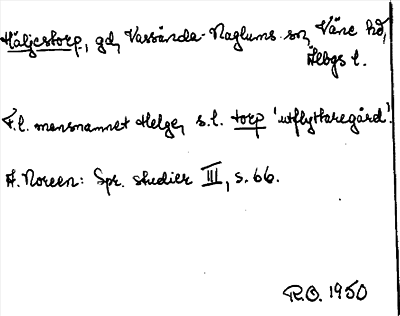 Häljestorp, gd, Vassända-Naglums sn, Väne hd,
Älbgs l.
F.l. mansnamnet Helge, s.l. torp 'utflyttaregård'.
A. Noreen: Spr. studier III, s. 66.
R.O. 1950